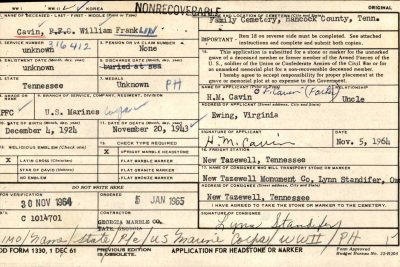 WW I WW II ✓ KOREA
NONRECOVERABLE
ORIGINAL
NAME OF DECEASED - LAST - FIRST - MIDDLE (Print or Type)
Cavin, P.F.C. William Franklin
NAME AND LOCATION OF CEMETERY (City and State)
Family Cemetery, Hancock County, Tenn.
IMPORTANT: Item 18 on reverse side must be completed. See attached
instructions and complete and submit both copies.
SERVICE NUMBER
316412
unknown
PENSION OR VA CLAIM NUMBER
None
This application is submitted for a stone or marker for the unmarked
grave of a deceased member or former member of the Armed Forces of the
U.S., soldier of the Union or Confederate Armies of the Civil War or for an
unmarked memorial plot for a non-recoverable deceased member.
I hereby agree to accept responsibility for proper placement at the grave
or memorial plot at no expense to the Government.
ENLISTMENT DATE
unknown
DISCHARGE DATE
buried at sea
STATE
Tennessee
MEDALS
Unknown PH
H.M. Cavin
Uncle
Ewing, Virginia
PFC
U.S. Marines Corps
December 4, 1924
November 20, 1943 ✓
SIGNATURE OF APPLICANT
DATE
H M. Cavin
Nov. 5, 1964
RELIGIOUS EMBLEM (Check one)
CHECK TYPE REQUIRED
X LATIN CROSS (Christian)
STAR OF DAVID (Hebrew)
NO EMBLEM
X UPRIGHT MARBLE HEADSTONE
FLAT MARBLE MARKER
FLAT GRANITE MARKER
FLAT BRONZE MARKER
FREIGHT STATION
New Tazewell, Tennessee
NAME OF CONSIGNEE WHO WILL TRANSPORT STONE OR MARKER
New Tazewell Monument Co. Lynn Standifer, Ow
DO NOT WRITE HERE
FOR VERIFICATION
30 NOV 1964
ORDERED
5 JAN 1965
New Tazewell, Tennessee
I HAVE AGREED TO TAKE THE STONE OR MARKER TO THE CEMETERY.
C 1014701
GEORGIA MARBLE CO.
TATE GEORGIA
SIGNATURE OF CONSIGNEE
Lynn Standifer
IMO/Name/State/Pfc/US Marine Corps/WWII/ PH
DD FORM 1330, 1 DEC 61
PREVIOUS EDITION IS OBSOLETE.
APPLICATION FOR HEADSTONE OR MARKER
Form Approved